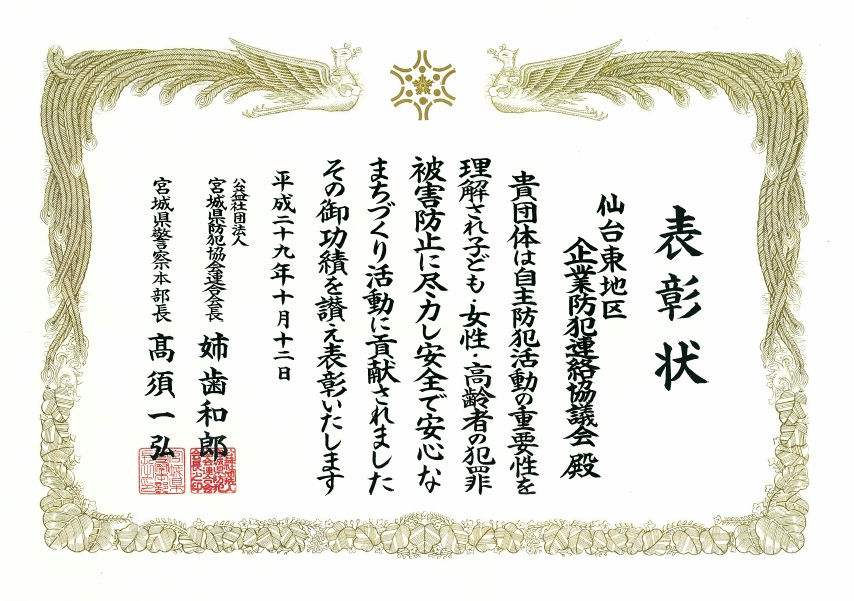 表彰状
仙台東地区
企業防犯連絡協議会 殿
貴団体は自主防犯活動の重要性を
理解され子ども・女性・高齢者の犯罪
被害防止に尽力し安全で安心な
まちづくり活動に貢献されました
その御功績を讃え表彰いたします
平成二十九年十月十二日
公益社団法人
宮城県防犯協会連合会長 姉歯和郎
宮城県警察本部長 髙須一弘